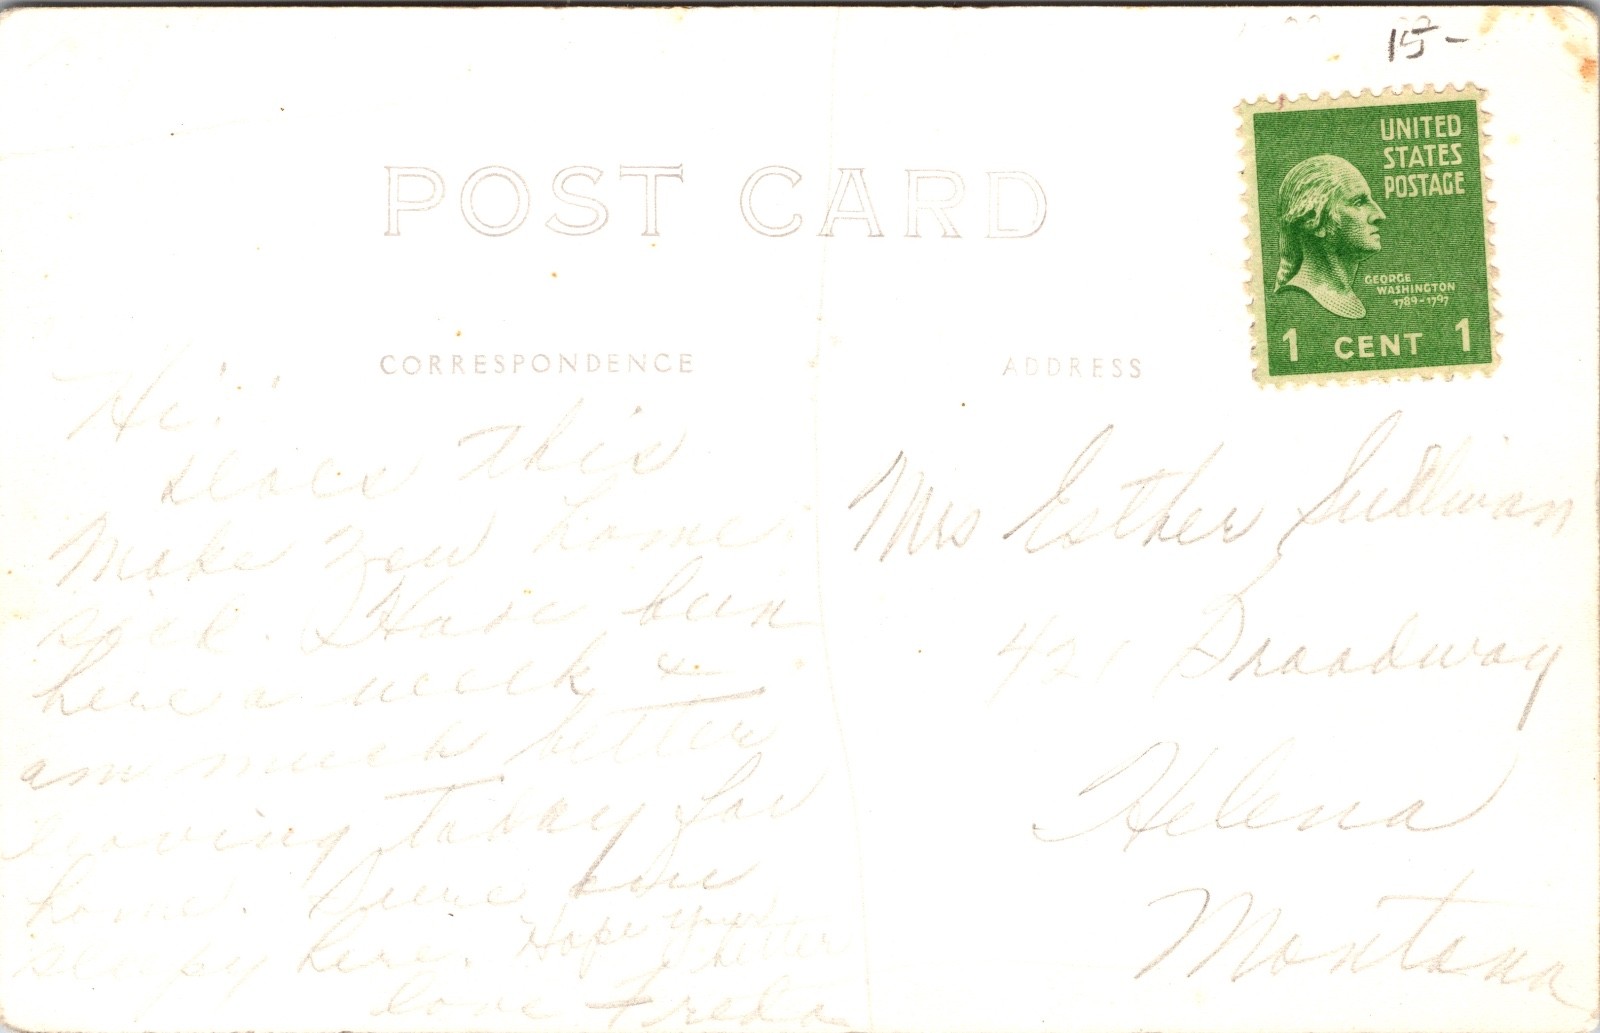 15-
UNITED
STATES
POSTAGE
GEORGE
WASHINGTON
1789-1797
1 CENT 1
POST CARD
CORRESPONDENCE
ADDRESS
Hi!
Does This
Make you home
sick. I Have been
here a week &
am much better
leaving Today for
home. Sure
here. Hope your
better
love Freda
Mrs Esther Sullivan
421 Broadway
Helena
Montana